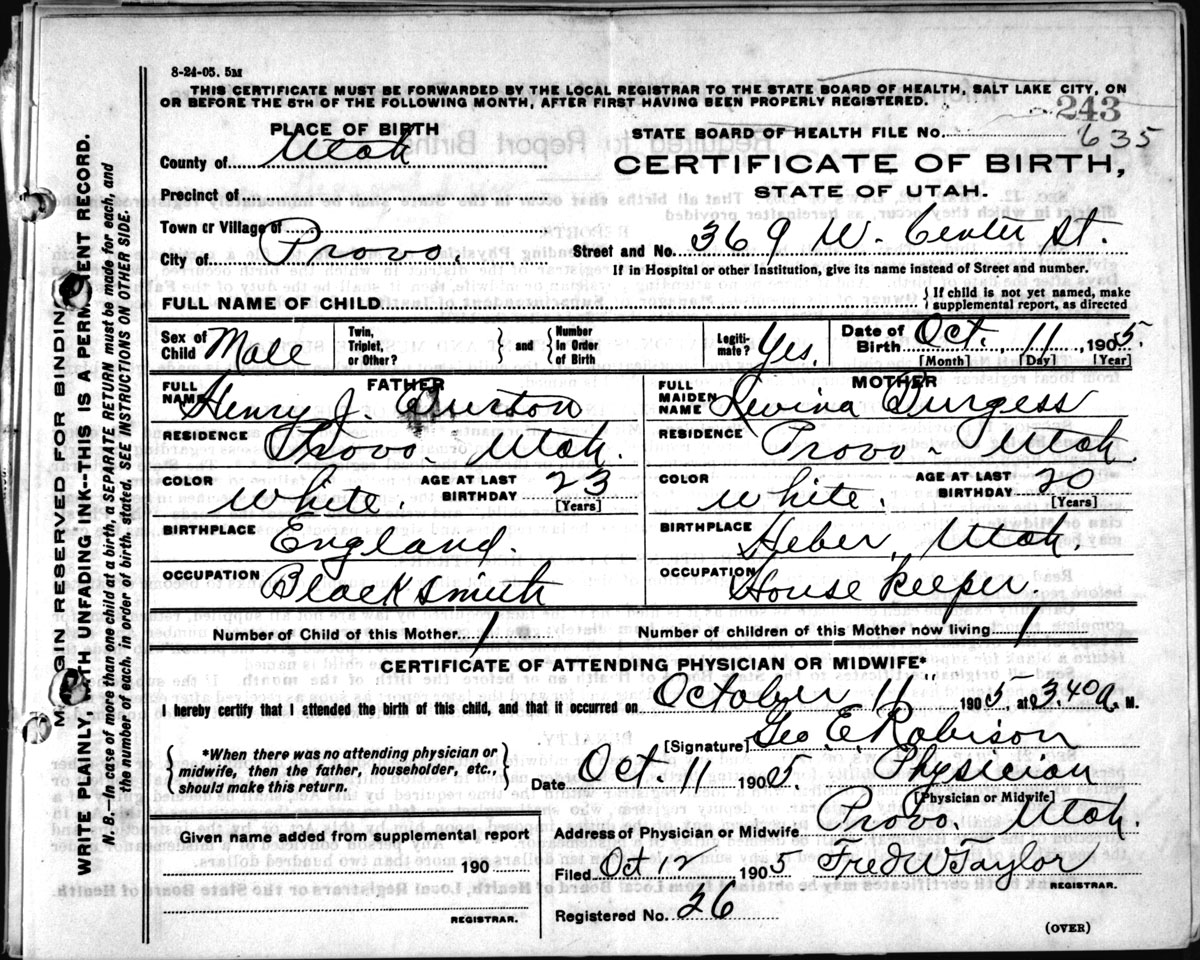 8-24-05. 5M
THIS CERTIFICATE MUST BE FORWARDED BY THE LOCAL REGISTRAR TO THE STATE BOARD OF HEALTH, SALT LAKE CITY, ON
OR BEFORE THE 5TH OF THE FOLLOWING MONTH, AFTER FIRST HAVING BEEN PROPERLY REGISTERED.
243
PLACE OF BIRTH
STATE BOARD OF HEALTH FILE NO. 635
County of Utah
CERTIFICATE OF BIRTH,
STATE OF UTAH.
Precinct of
Town or Village of
City of Provo.
Street and No. 369 W. Center St.
If in Hospital or other Institution, give its name instead of Street and number.
FULL NAME OF CHILD
{ If child is not yet named, make
supplemental report, as directed
Sex of Child Male
Twin, Triplet, or Other? } and { Number in Order of Birth
Legiti-mate? Yes.
Date of Birth Oct. 11 1905.
[Month] [Day] [Year]
FATHER
FULL NAME Henry J. Overton
RESIDENCE Provo. Utah.
COLOR White.
AGE AT LAST BIRTHDAY 23
[Years]
BIRTHPLACE England.
OCCUPATION Blacksmith
MOTHER
FULL MAIDEN NAME Levina Burgess
RESIDENCE Provo - Utah.
COLOR White.
AGE AT LAST BIRTHDAY 20
[Years]
BIRTHPLACE Heber, Utah.
OCCUPATION House Keeper.
Number of Child of this Mother 1
Number of children of this Mother now living 1
CERTIFICATE OF ATTENDING PHYSICIAN OR MIDWIFE*
I hereby certify that I attended the birth of this child, and that it occurred on October 11" 1905- at 3.40 a. M.
[Signature] Geo. E. Robison
{ *When there was no attending physician or
midwife, then the father, householder, etc.,
should make this return. }
Date Oct 11 1905
Physician
[Physician or Midwife]
Given name added from supplemental report
190
REGISTRAR.
Address of Physician or Midwife Provo. Utah.
Filed Oct 12 1905 Fred W Taylor
REGISTRAR.
Registered No. 26
(OVER)
MARGIN RESERVED FOR BINDING
WRITE PLAINLY WITH UNFADING INK--THIS IS A PERMANENT RECORD.
N. B.--In case of more than one child at a birth, a SEPARATE RETURN must be made for each, and
the number of each, in order of birth, stated. SEE INSTRUCTIONS ON OTHER SIDE.